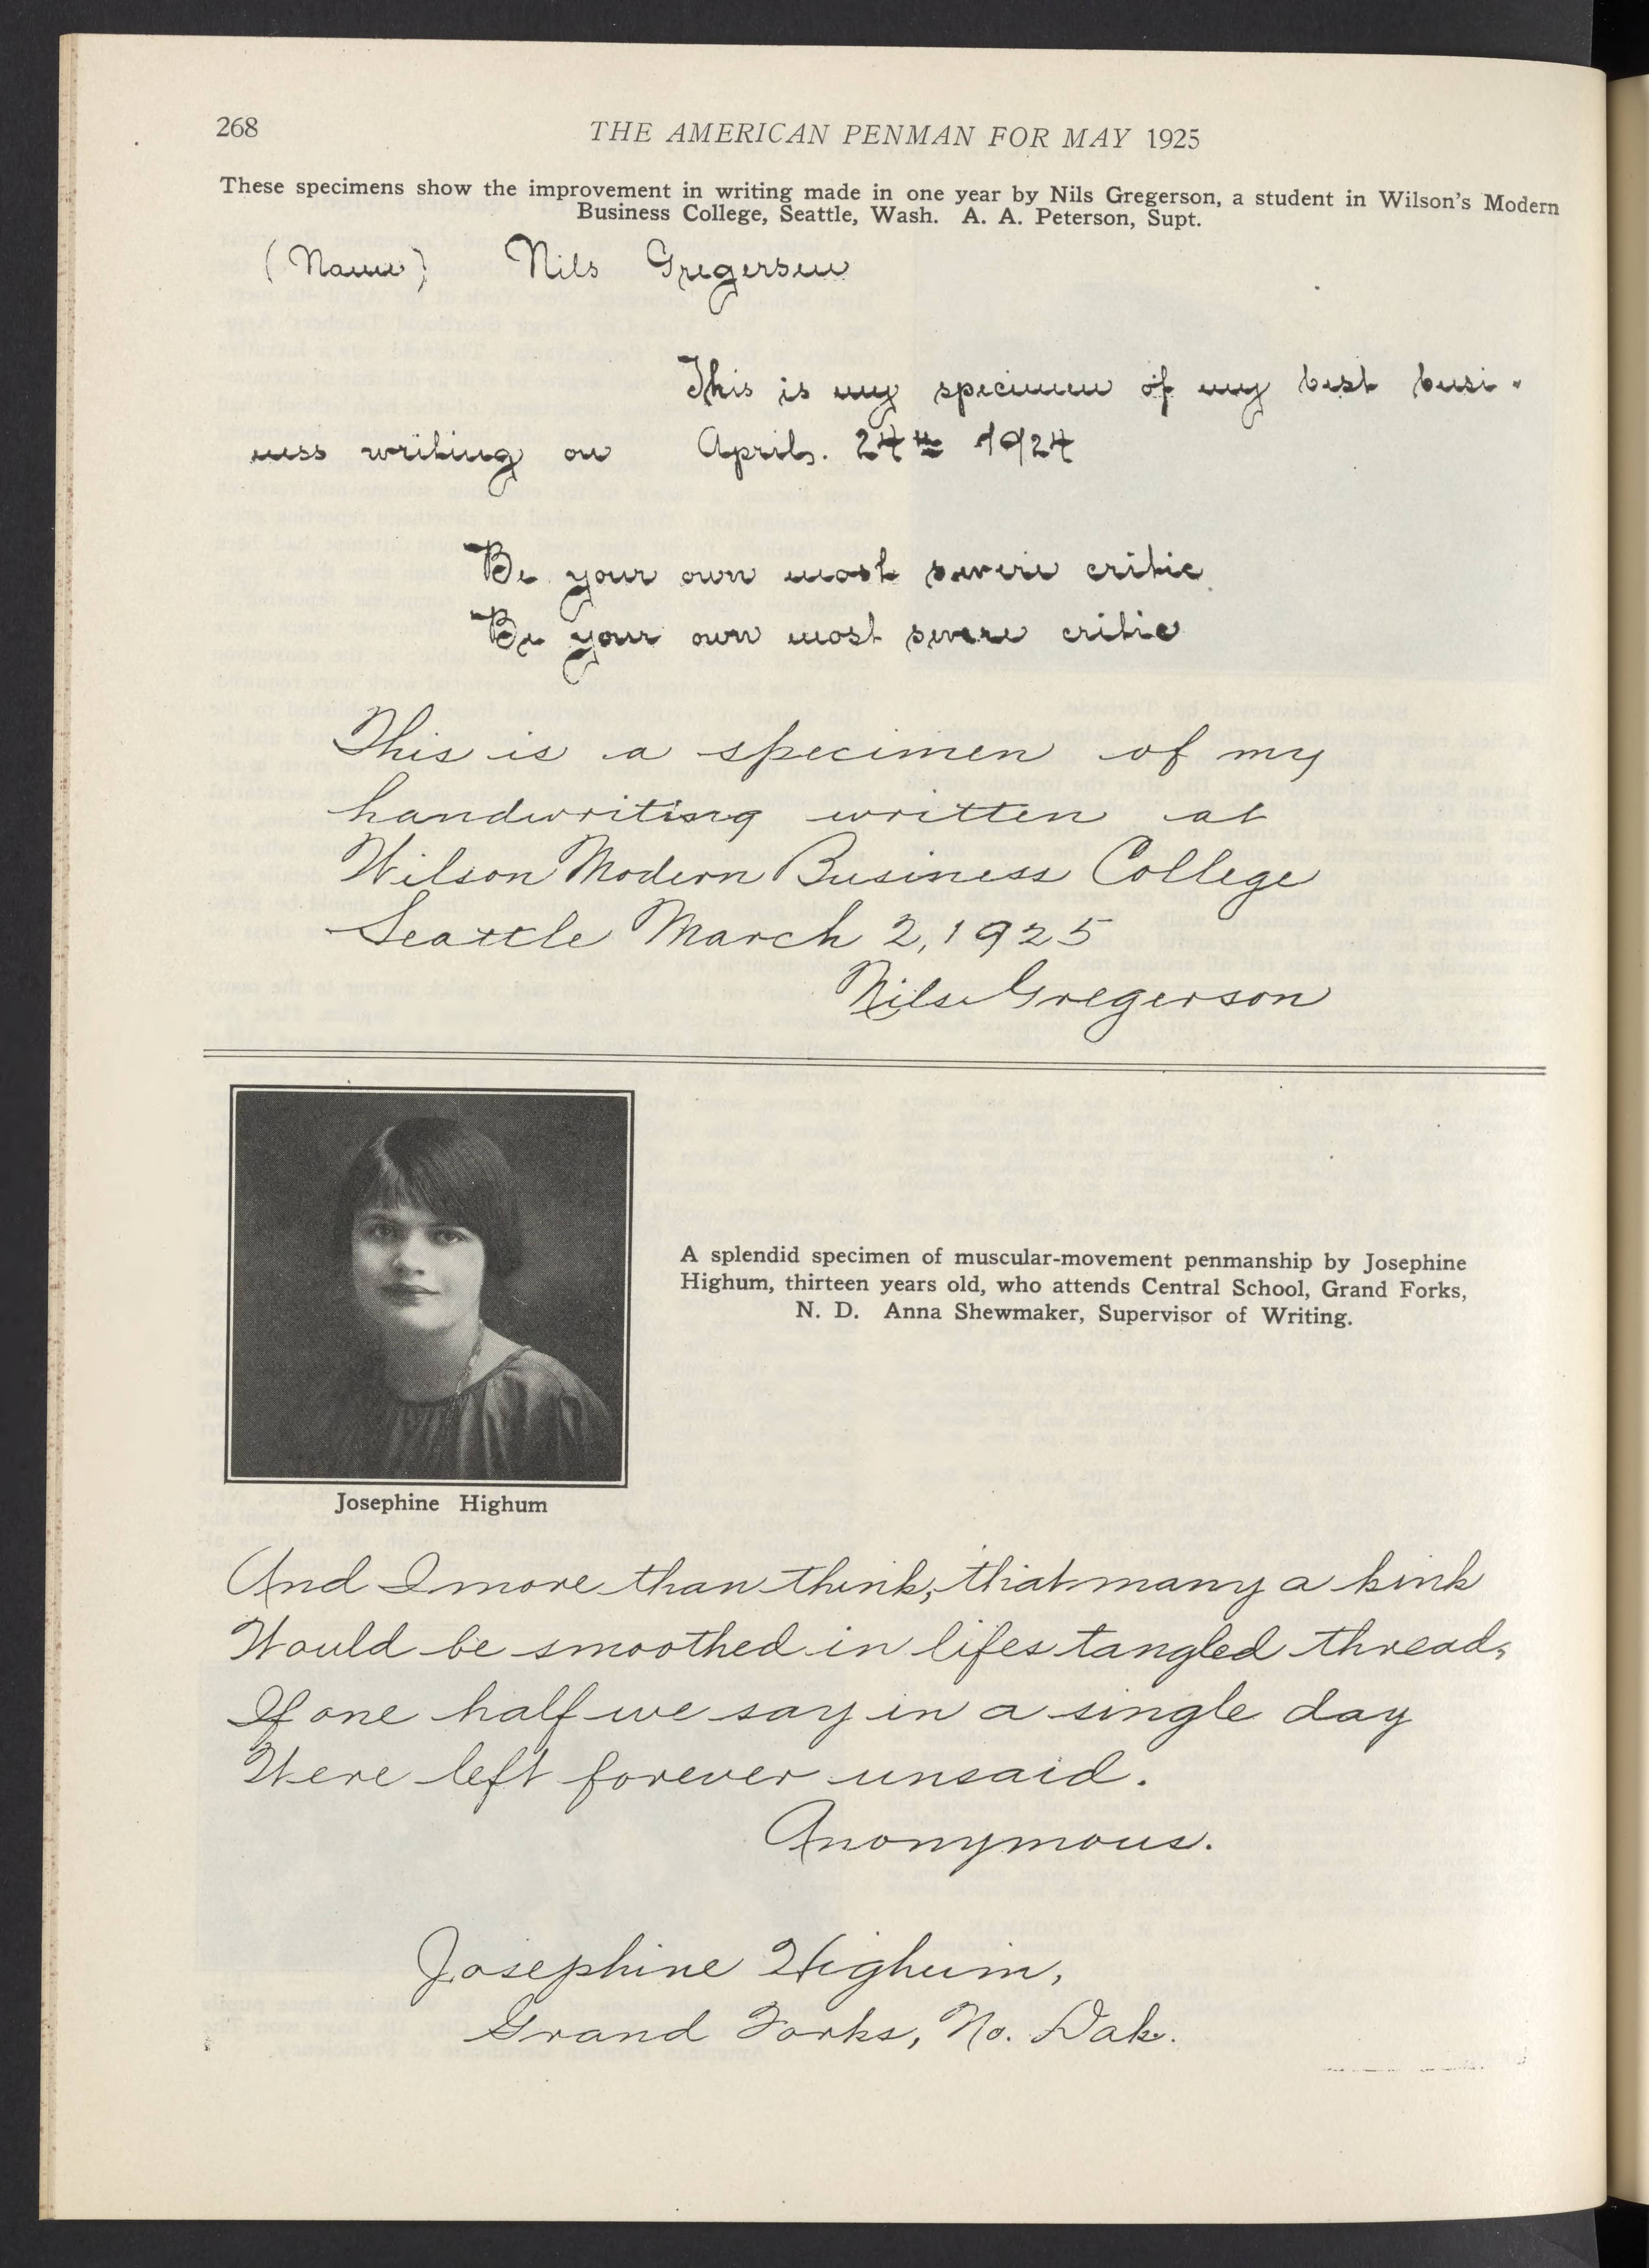 268
THE AMERICAN PENMAN FOR MAY 1925
These specimens show the improvement in writing made in one year by Nils Gregerson, a student in Wilson's Modern
Business College, Seattle, Wash. A. A. Peterson, Supt.
(Name) Nils Gregersen
This is my specimen of my best busi-
ness writing on April. 24th 1924
Be your own most severe critic
Be your own most severe critic
This is a specimen of my
handwriting written at
Wilson Modern Business College
Seattle March 2, 1925
Nils Gregerson
A splendid specimen of muscular-movement penmanship by Josephine
Highum, thirteen years old, who attends Central School, Grand Forks,
N. D. Anna Shewmaker, Supervisor of Writing.
Josephine Highum
And I more than think, that many a kink
Would be smoothed in lifes tangled thread,
If one half we say in a single day
Were left forever unsaid.
Anonymous.
Josephine Highum,
Grand Forks, No. Dak.